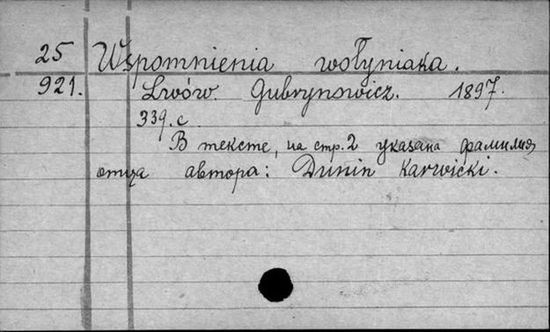 25 Wspomnienia wołyniaka.
921. Lwów. Gubrynowicz. 1897.
339. c
В тексте, на стр. 2 указана фамилия
отца автора: Dunin Karwicki.